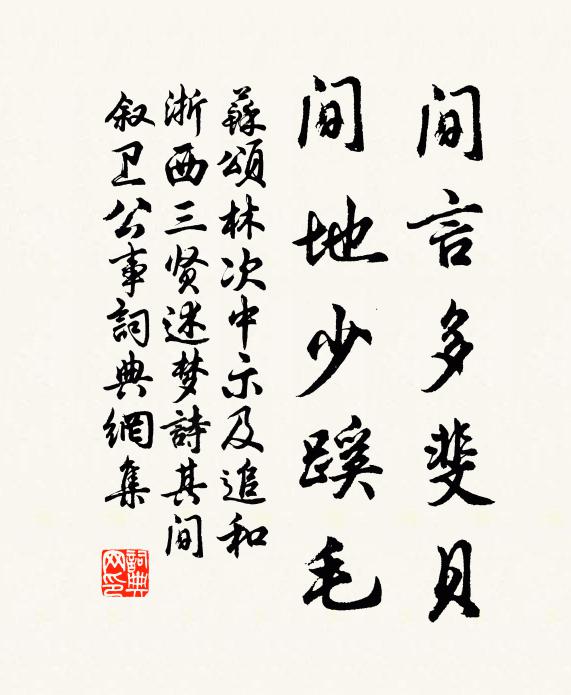 间言多斐贝
间地少蹊毛
蘇頌林次中示及追和
浙西三贤述梦詩其间
叙卫公事詞典網集
詞典
网印